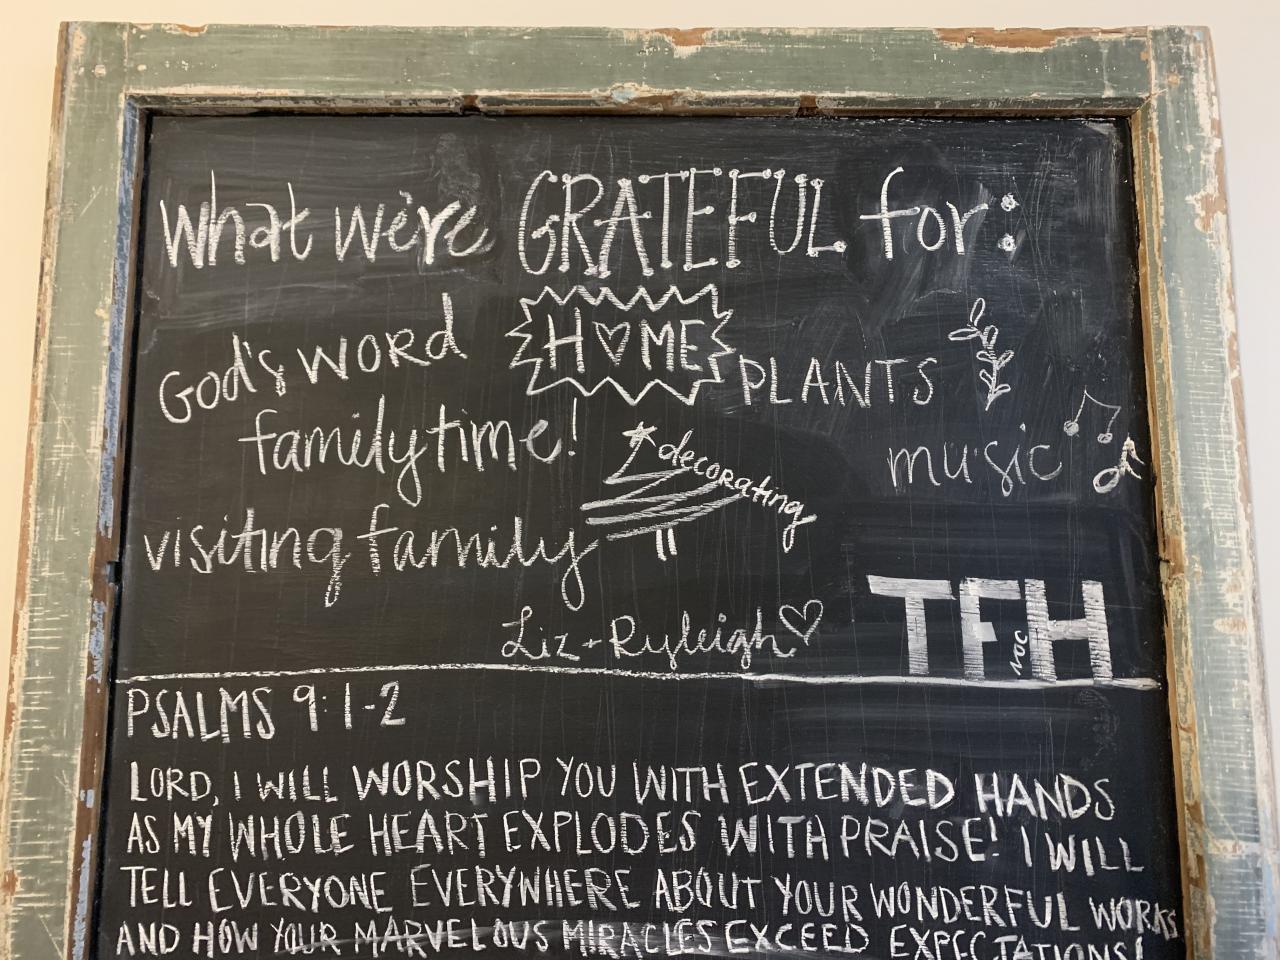 What we're GRATEFUL for:
God's WORD
H♡ME
PLANTS
family time!
decorating
music
visiting family
Liz + Ryleigh ♡
TFH
NOC
PSALMS 9:1-2
LORD, I WILL WORSHIP YOU WITH EXTENDED HANDS
AS MY WHOLE HEART EXPLODES WITH PRAISE! I WILL
TELL EVERYONE EVERYWHERE ABOUT YOUR WONDERFUL WORKS
AND HOW YOUR MARVELOUS MIRACLES EXCEED EXPECTATIONS!